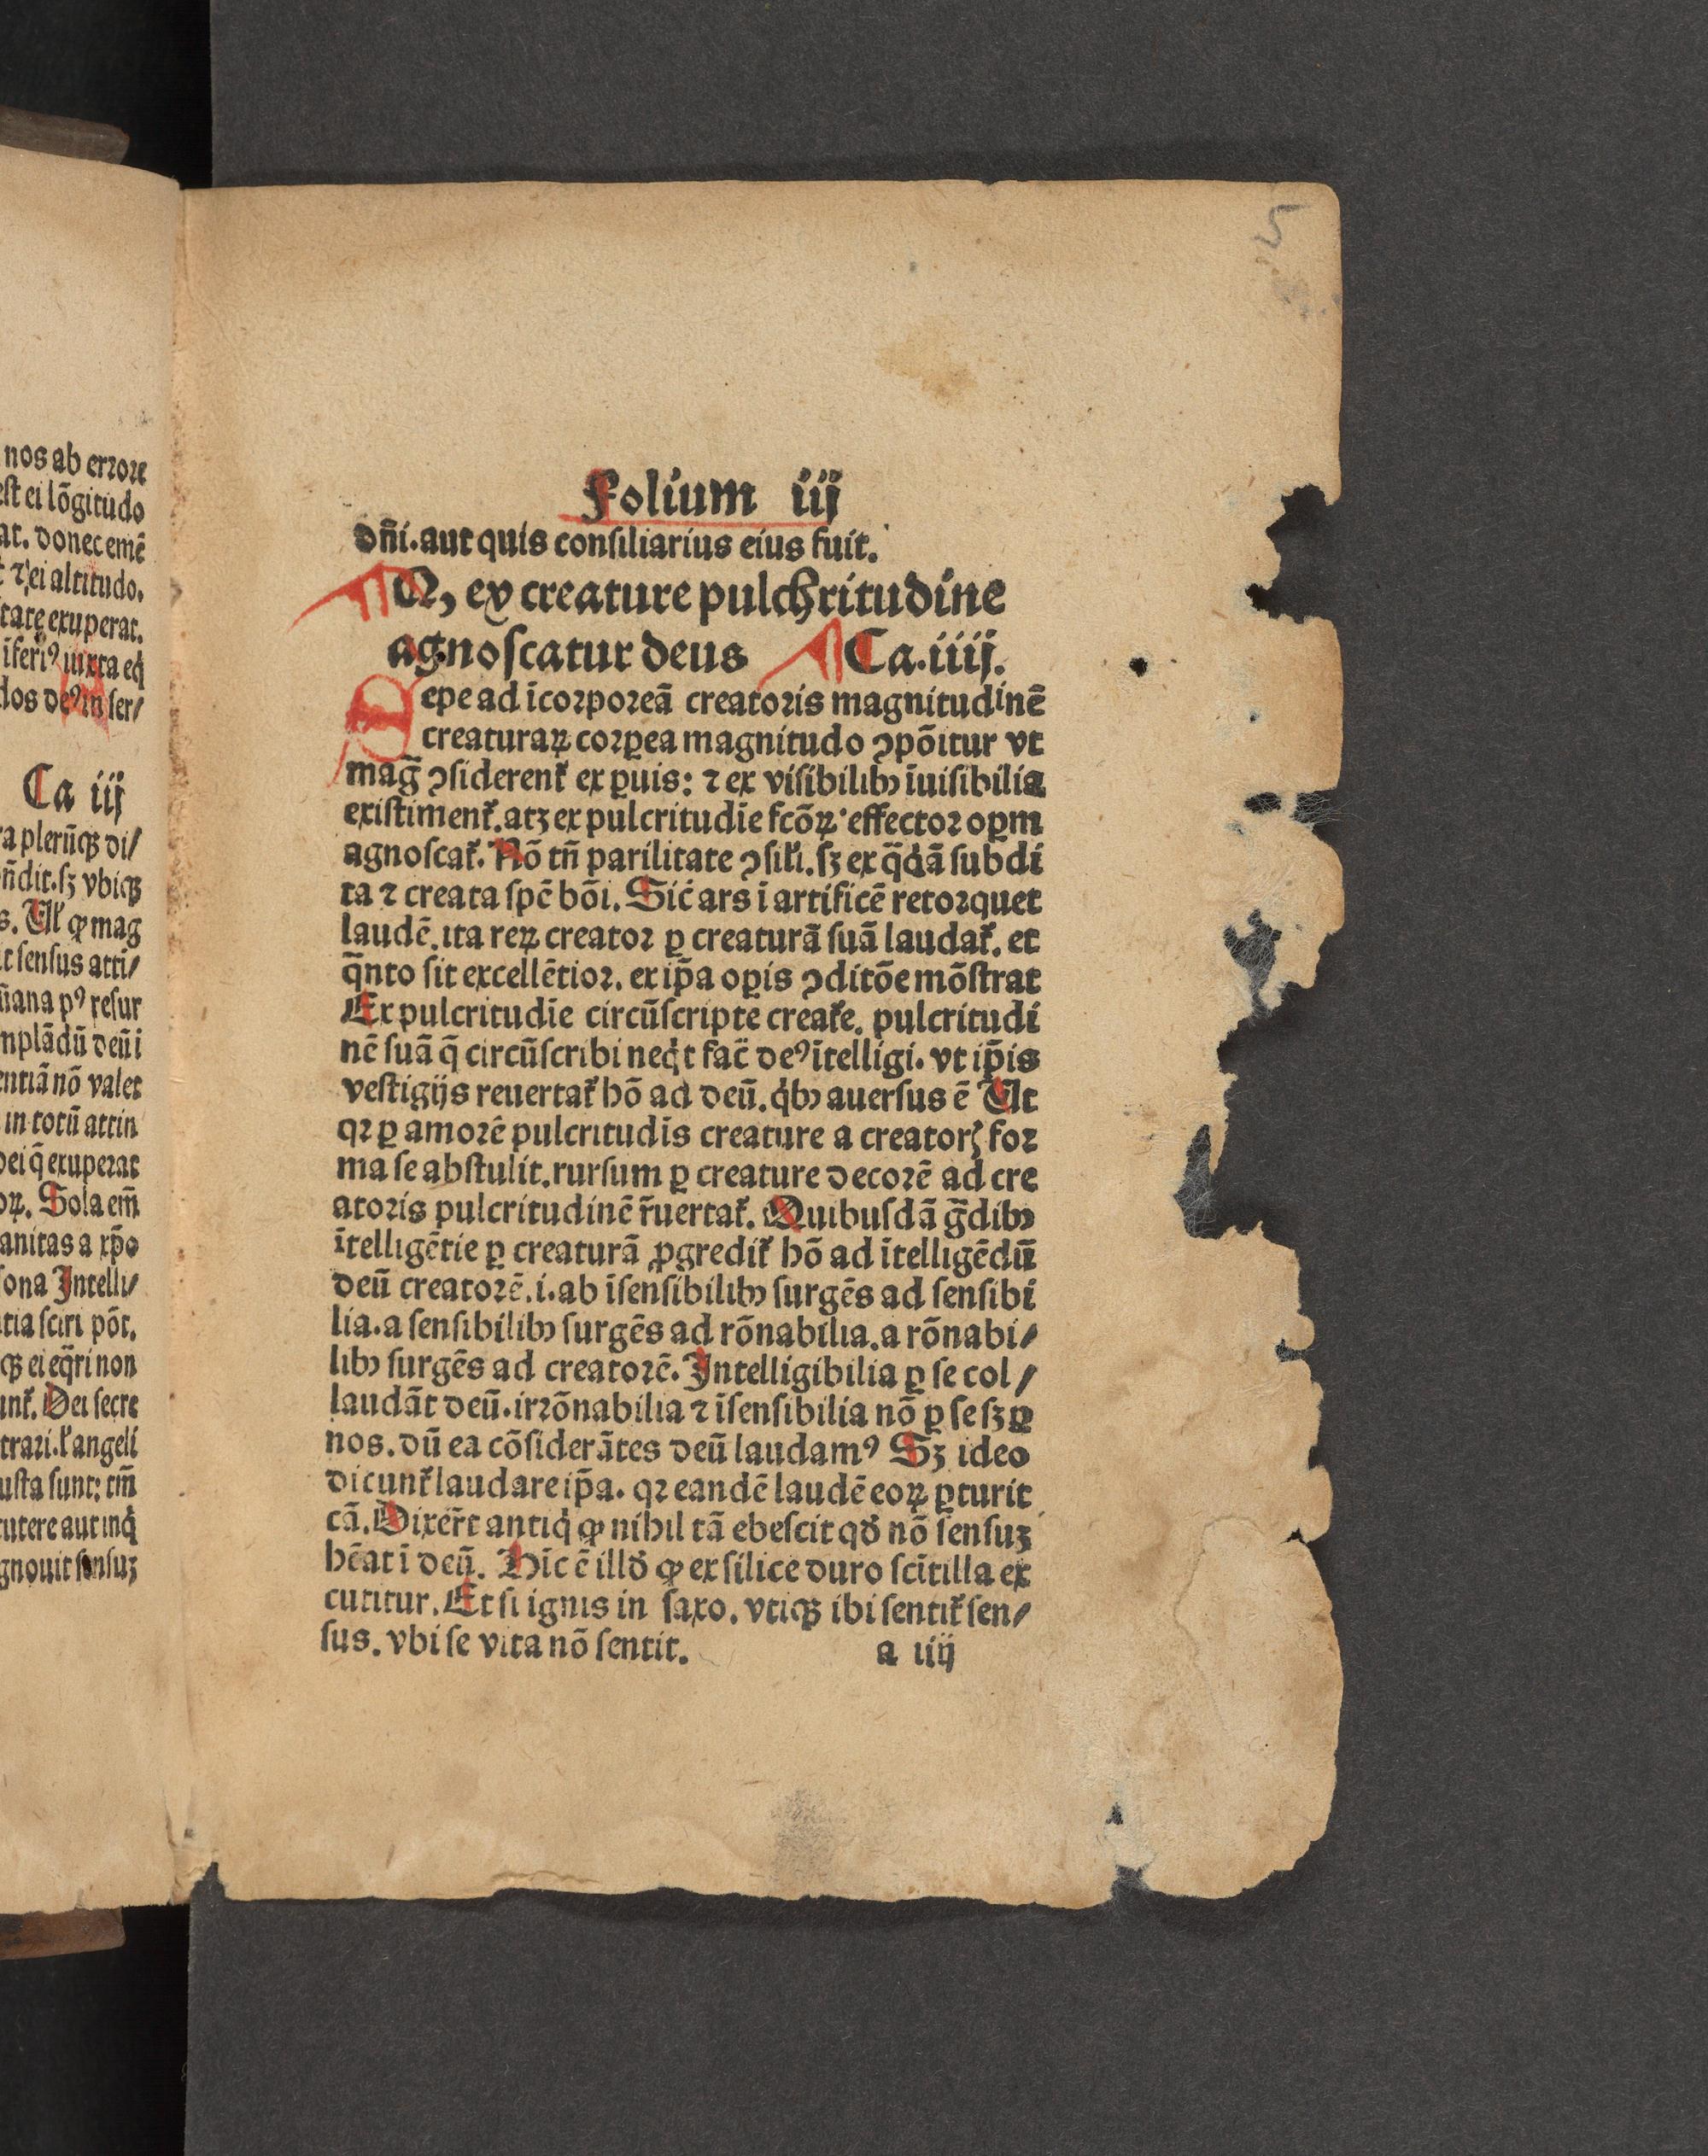 nos ab errore
est ei lōgitudo
at. donec emē
⁊ ei altitudo.
tate exuperat.
iferiꝰ iuxta eq̇
dos deꝰ in ser/
Ca iij
ra plerūqꝫ di/
n̄dit. sꝫ vbiqꝫ
s. Al̓ ꝙ mag
it sensus atti/
ūana pꝰ resur
mplādū deū i
entiā nō valet
in totū attin
dei q̄ exuperat
oꝝ. Sola em̄
anitas a xp̄o
sona Intelli/
tia sciri pōt.
qꝫ ei eq̄ri non
unt᷑. Dei secre
trari. l̓ angeli
usta sunt: tm̄
cutere aut inq̇
gnouit sensuꝫ
Folium iij
dn̄i. aut quis consiliarius eius fuit.
Q, ex creature pulchritudine
agnoscatur deus Ca. iiij.
Sepe ad īcorporeā creatoris magnitudinē
creaturaꝝ corꝑea magnitudo ꝯpōitur vt
maḡ ꝯsiderent᷑ ex ꝑuis: ⁊ ex visibilibꝰ īuisibilia
existiment᷑. atꝫ ex pulcritudīe fcōꝝ effector oꝑm
agnoscat᷑. Nō tn̄ parilitate ꝯsil̓i. sꝫ ex q̄dā subdi
ta ⁊ creata spē bōi. Sic̄ ars ī artificē retorquet
laudē. ita reꝝ creator ꝑ creaturā suā laudat᷑. et
q̄nto sit excellētior. ex ip̄a oꝑis ꝯditōe mōstrat
Ex pulcritudīe circūscripte creat᷑e. pulcritudi
nē suā q̄ circūscribi neq̇t fac̄ deꝰ ītelligi. vt ip̄is
vestigijs reuertat᷑ hō ad deū. q̇bꝰ auersus ē At
qꝛ ꝑ amorē pulcritudīs creature a creatorꝭ for
ma se abstulit. rursum ꝑ creature decorē ad cre
atoris pulcritudinē r̄uertat᷑. Quibusdā ḡdibꝰ
ītelligētie ꝑ creaturā ꝓgredit᷑ hō ad ītelligēdū
deū creatorē. i. ab īsensibilibꝰ surgēs ad sensibi
lia. a sensibilibꝰ surgēs ad rōnabilia. a rōnabi/
libꝰ surgēs ad creatorē. Intelligibilia ꝑ se col/
laudāt deū. irrōnabilia ⁊ īsensibilia nō ꝑ se sꝫ ꝑ
nos. dū ea cōsiderātes deū laudamꝰ Sꝫ ideo
dicunt᷑ laudare ip̄a. qꝛ eandē laudē eoꝝ ꝑturit
cā. Dixer̄t antiq̇ ꝙ nihil tā ebescit qd̓ nō sensuꝫ
hēat ī deū. Hīc ē illd̓ ꝙ ex silice duro scītilla ex
cutitur. Et si ignis in saxo. vtiqꝫ ibi sentit᷑ sen/
sus. vbi se vita nō sentit. a iiij